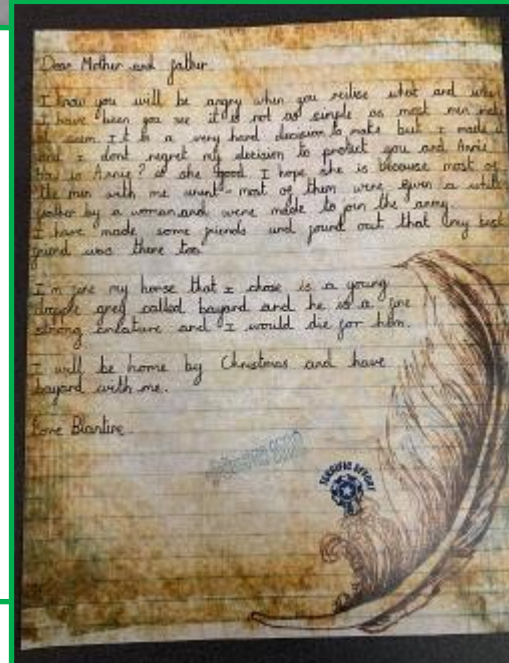 Dear Mother and father
I know you will be angry when you relise what and when
I have been you see it is not as simple as most men make
it seem. It is a very hard decision to make but I made it
and I dont regret my decision to protect you and Annie.
How is Annie? is she good I hope she is because most of
the men with me arent - most of them were given a white
feather by a woman and were made to join the army.
I have made some friends and found out that my best
friend was there too
I'm fine my horse that I chose is a young
dapple grey called bayard and he is a fine
strong creature and I would die for him.
I will be home by Christmas and have
bayard with me.
Love Blantire
TERRIFIC EFFORT